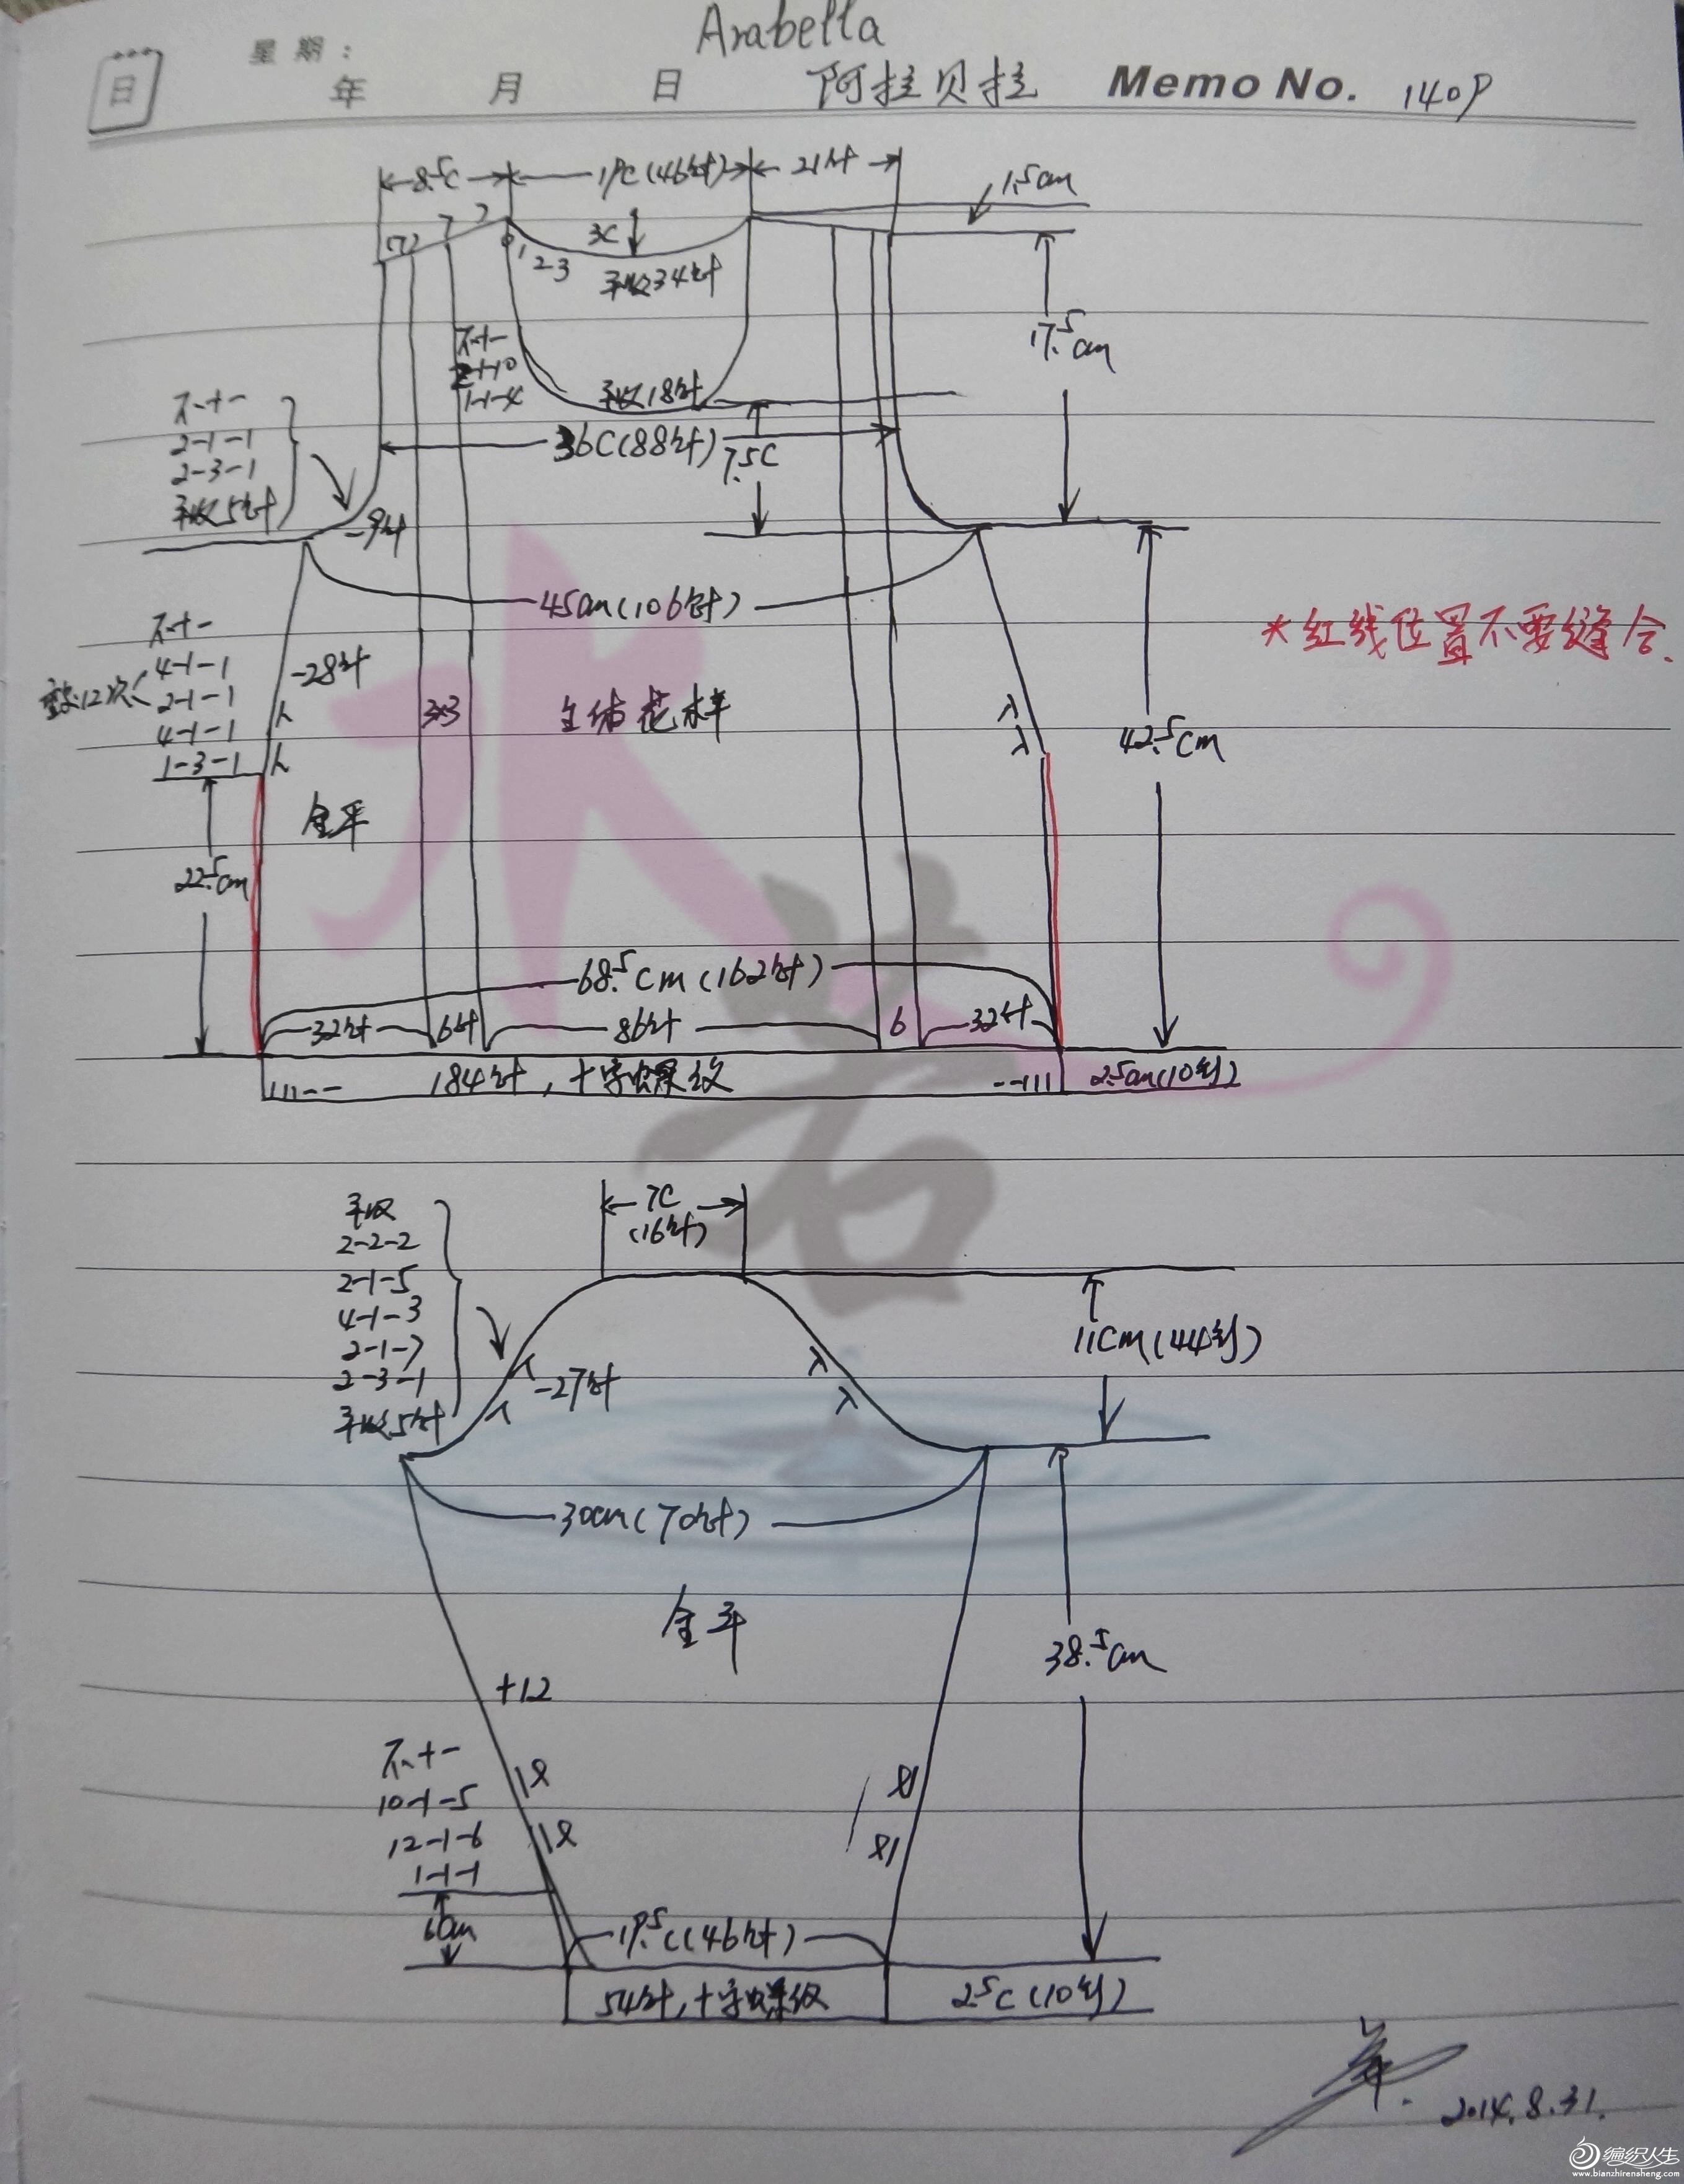 Arabella
星期：
日
年 月 日 阿拉贝拉 Memo No. 140P
8.5C 17C(46针) 21针 1.5cm
7 7 7
3C
1 2-3 平收34针
17.5cm
不+-
2-1-10
1-1-4
平收18针
不+-
2-1-1
2-3-1
平收5针
36C(88针) 7.5C
-9针
45cm(106针)
*红线位置不要缝合.
不+-
4-1-1
2-1-1
4-1-1
1-3-1
重复12次
-28针
3x3 主体花样
42.5cm
全平
22.5cm
68.5cm(162针)
32针 6针 86针 6 32针
184针,十字螺纹 2.5cm(10行)
7C
(16针)
平收
2-2-2
2-1-5
4-1-3
2-1-7
2-3-1
平收5针
-27针
11Cm(44行)
30cm(70针)
全平
38.5cm
+12
不+-
10-1-5
12-1-6
1-1-1
6cm
19.5C(46针)
54针,十字螺纹 2.5C(10行)
2014.8.31.
水若
编织人生
www.bianzhirensheng.com